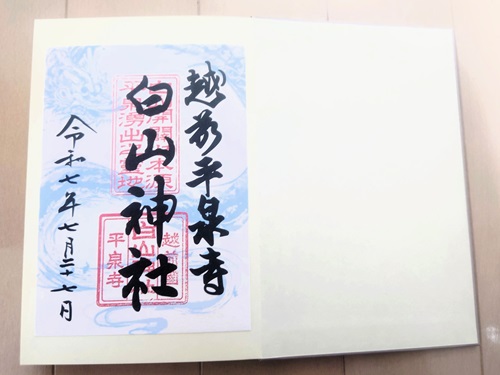 越前平泉寺
白山神社
令和七年七月二十七日
越前國
平泉寺